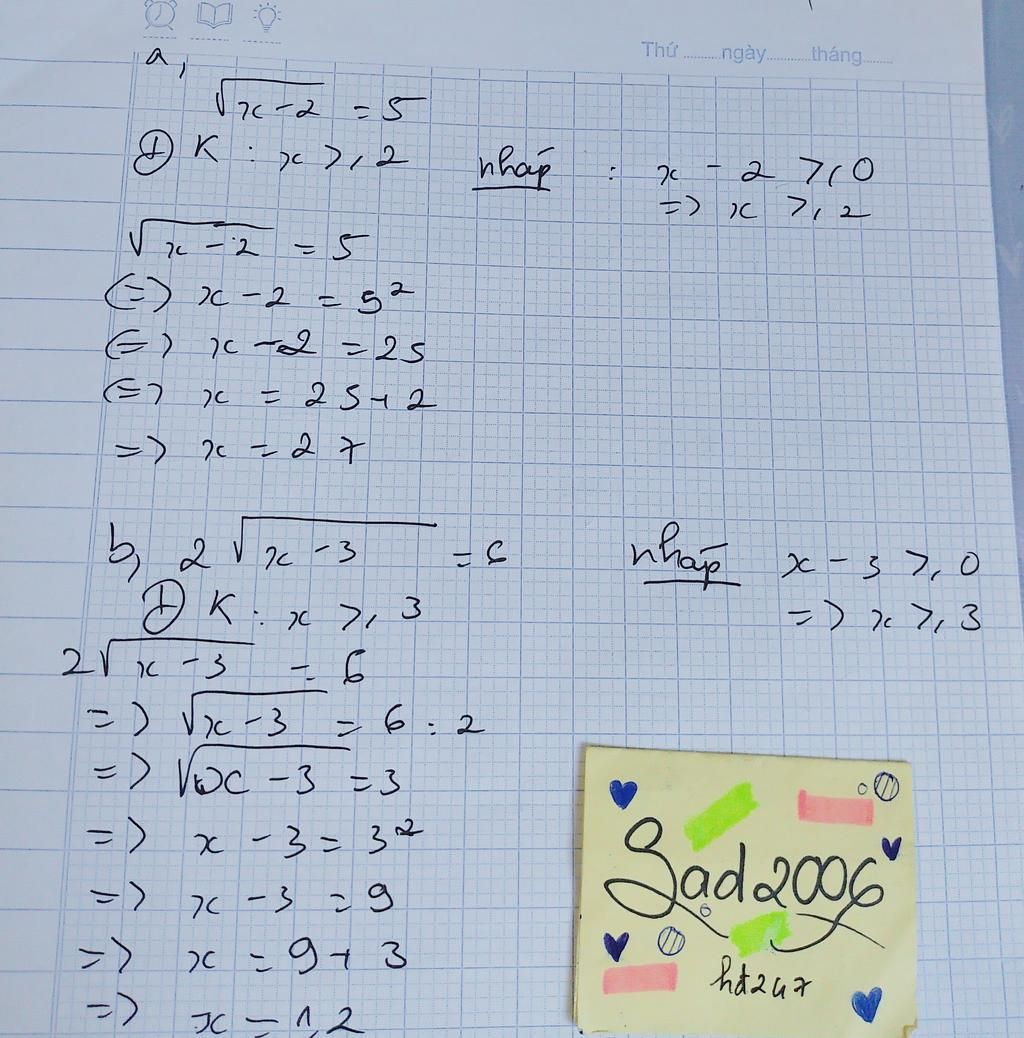 Thứ ........ ngày ........... tháng ........
a,
√(x-2) = 5
ĐK : x ≥ 2 nháp : x - 2 ≥ 0
=> x ≥ 2
√(x-2) = 5
<=> x-2 = 5²
<=> x-2 = 25
<=> x = 25+2
=> x = 27
b, 2√(x-3) = 6 nháp x-3 ≥ 0
ĐK : x ≥ 3 => x ≥ 3
2√(x-3) = 6
=> √(x-3) = 6 : 2
=> √(x-3) = 3
=> x-3 = 3²
=> x-3 = 9
=> x = 9+3
=> x = 12
Sad2006
hđ247